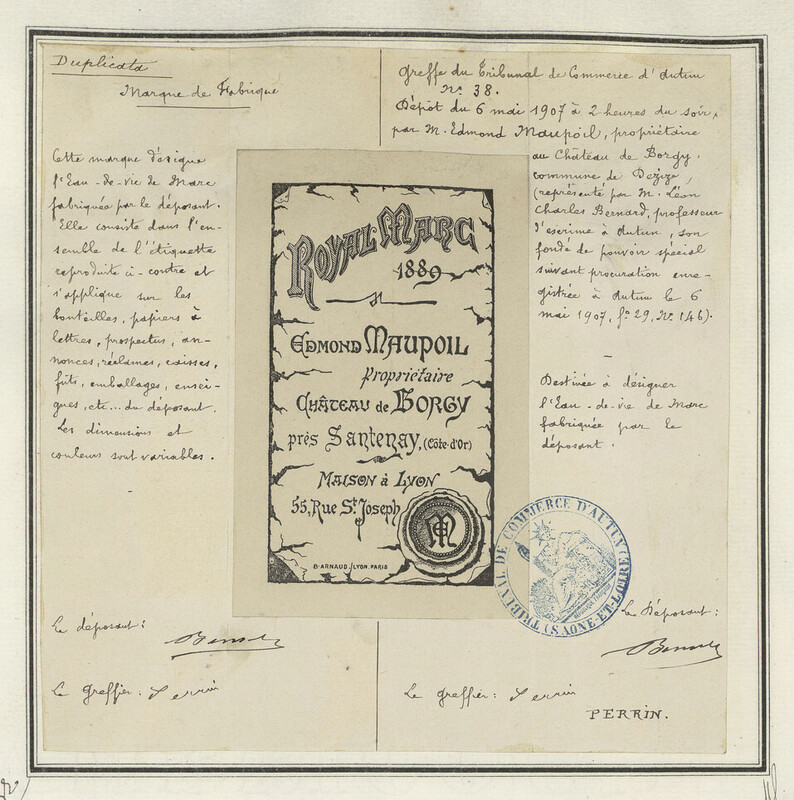 Duplicata
Marque de Fabrique
Cette marque désigne
l'Eau-de-vie de Marc
fabriquée par le déposant.
Elle consiste dans l'en-
semble de l'étiquette
reproduite ci-contre et
s'applique sur les
bouteilles, papiers à
lettres, prospectus, an-
nonces, réclames, caisses,
fûts, emballages, ensei-
gnes, etc... du déposant.
Les dimensions et
couleurs sont variables.
Greffe du Tribunal de Commerce d'Autun
N° 38.
Dépôt du 6 mai 1907 à 2 heures du soir,
par M. Edmond Maupoil, propriétaire
au Château de Borgy,
commune de Dezize,
(représenté par M. Léon
Charles Bernard, professeur
d'escrime à Autun, son
fondé de pouvoir spécial
suivant procuration enre-
gistrée à Autun le 6
mai 1907, f° 29, N° 146).
Destinée à désigner
l'Eau-de-vie de Marc
fabriquée par le
déposant.
ROYAL-MARC
1889
EDMOND MAUPOIL
Propriétaire
CHÂTEAU de BORGY
près Santenay, (Côte-d'Or)
MAISON à LYON
55, Rue St Joseph
M
B. ARNAUD, LYON. PARIS
TRIBUNAL DE COMMERCE D'AUTUN
(SAONE-ET-LOIRE)
Le déposant:
Le greffier: Perrin
Le Déposant:
Le greffier: Perrin
PERRIN.